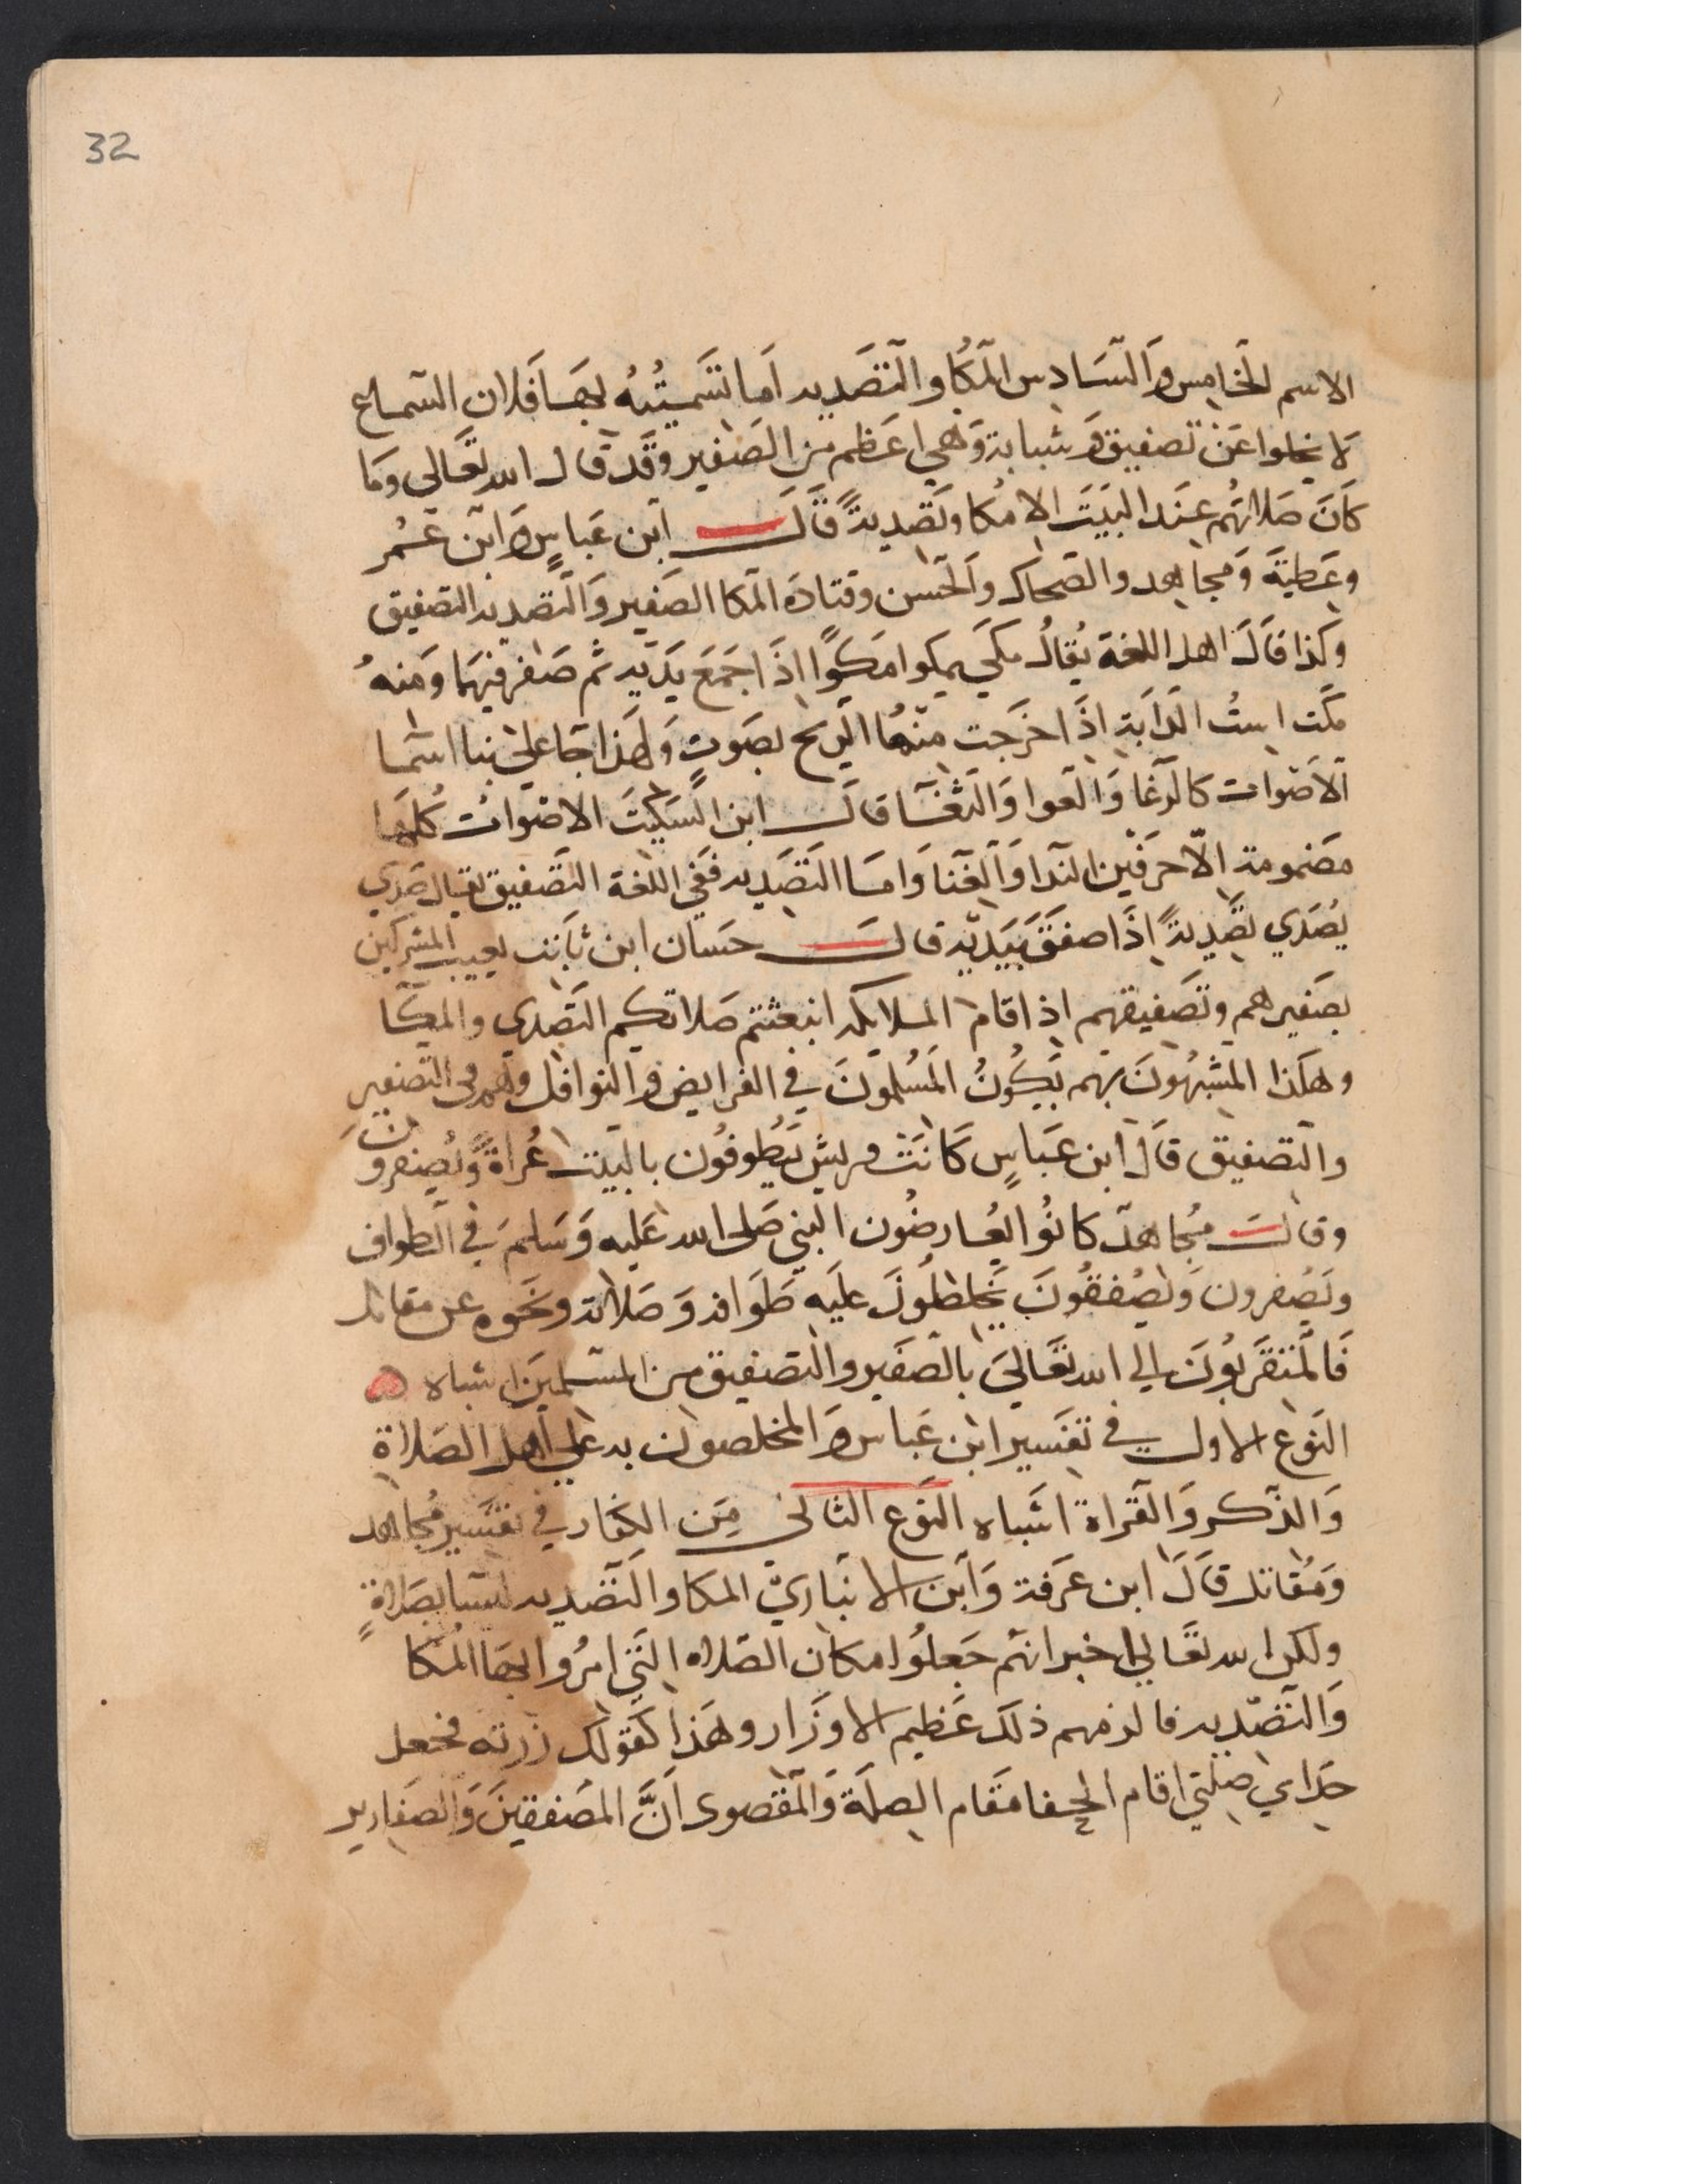 32
الاسم الخامس والسادس المكا والتصديه اما تسميته بهما فلان السماع
لا يخلوا عن تصفيق وشبابة وهي اعظم من الصفير وقد قال الله تعالى وما
كان صلاتهم عند البيت الا مكا وتصدية قال ابن عباس وابن عمر
وعطية ومجاهد والضحاك والحسن وقتادة المكا الصفير والتصديه التصفيق
وكذا قال اهل اللغة يقال مكي يمكوا مكوا اذا جمع يديه ثم صفر فيهما ومنه
مكت است الدابة اذا اخرجت منها الريح بصوت ولهذا جا علي بنا اسما
الاصوات كالرغا والعوا والثغا قال ابن السكيت الاصوات كلها
مضمومة الا حرفين الندا والغنا واما التصديه ففي اللغة التصفيق يقال صدي
يصدي تصدية اذا صفق بيديه قال حسان ابن ثابت يعيب المشركين
بصفيرهم وتصفيقهم اذا قام الملايكه انبعثتم صلاتكم التصدي والمكا
وهكذا المشبهون بهم يكون المسلمون في الفرايض والنوافل وهم في التصفير
والتصفيق قال ابن عباس كانت قريش يطوفون بالبيت عراة ويصفرون
وقال مجاهد كانوا يعارضون النبي صلى الله عليه وسلم في الطواف
ويصفرون ويصفقون يخلطون عليه طوافه وصلاته ونحوه عن مقاتل
فالمتقربون الي الله تعالى بالصفير والتصفيق من المسلمين اشباه ه
النوع الاول في تفسير ابن عباس والمخلصون به علي اهل الصلاة
والذكر والقراة اشباه النوع الثاني من الكفار في تفسير مجاهد
ومقاتل قال ابن عرفة وابن الانباري المكا والتصديه ليسا بصلاة
ولكن الله تعالي اخبر انهم جعلوا مكان الصلاه التي امروا بها المكا
والتصديه فالزمهم ذلك عظيم الاوزار وهذا كقولك زرته فجعل
جداي صلتي اقام الجفا مقام الصلة والمقصود ان المصفقين والصفارير